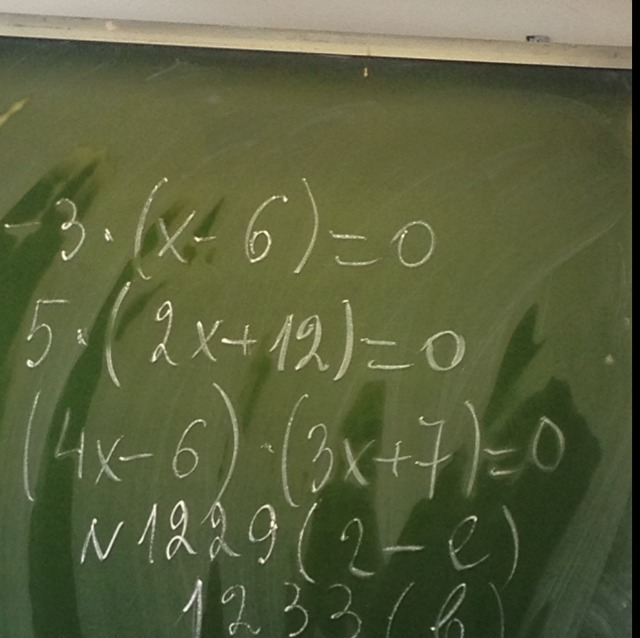 -3·(x-6)=0
5·(2x+12)=0
(4x-6)·(3x+7)=0
N1229(2-е)
1233(в)